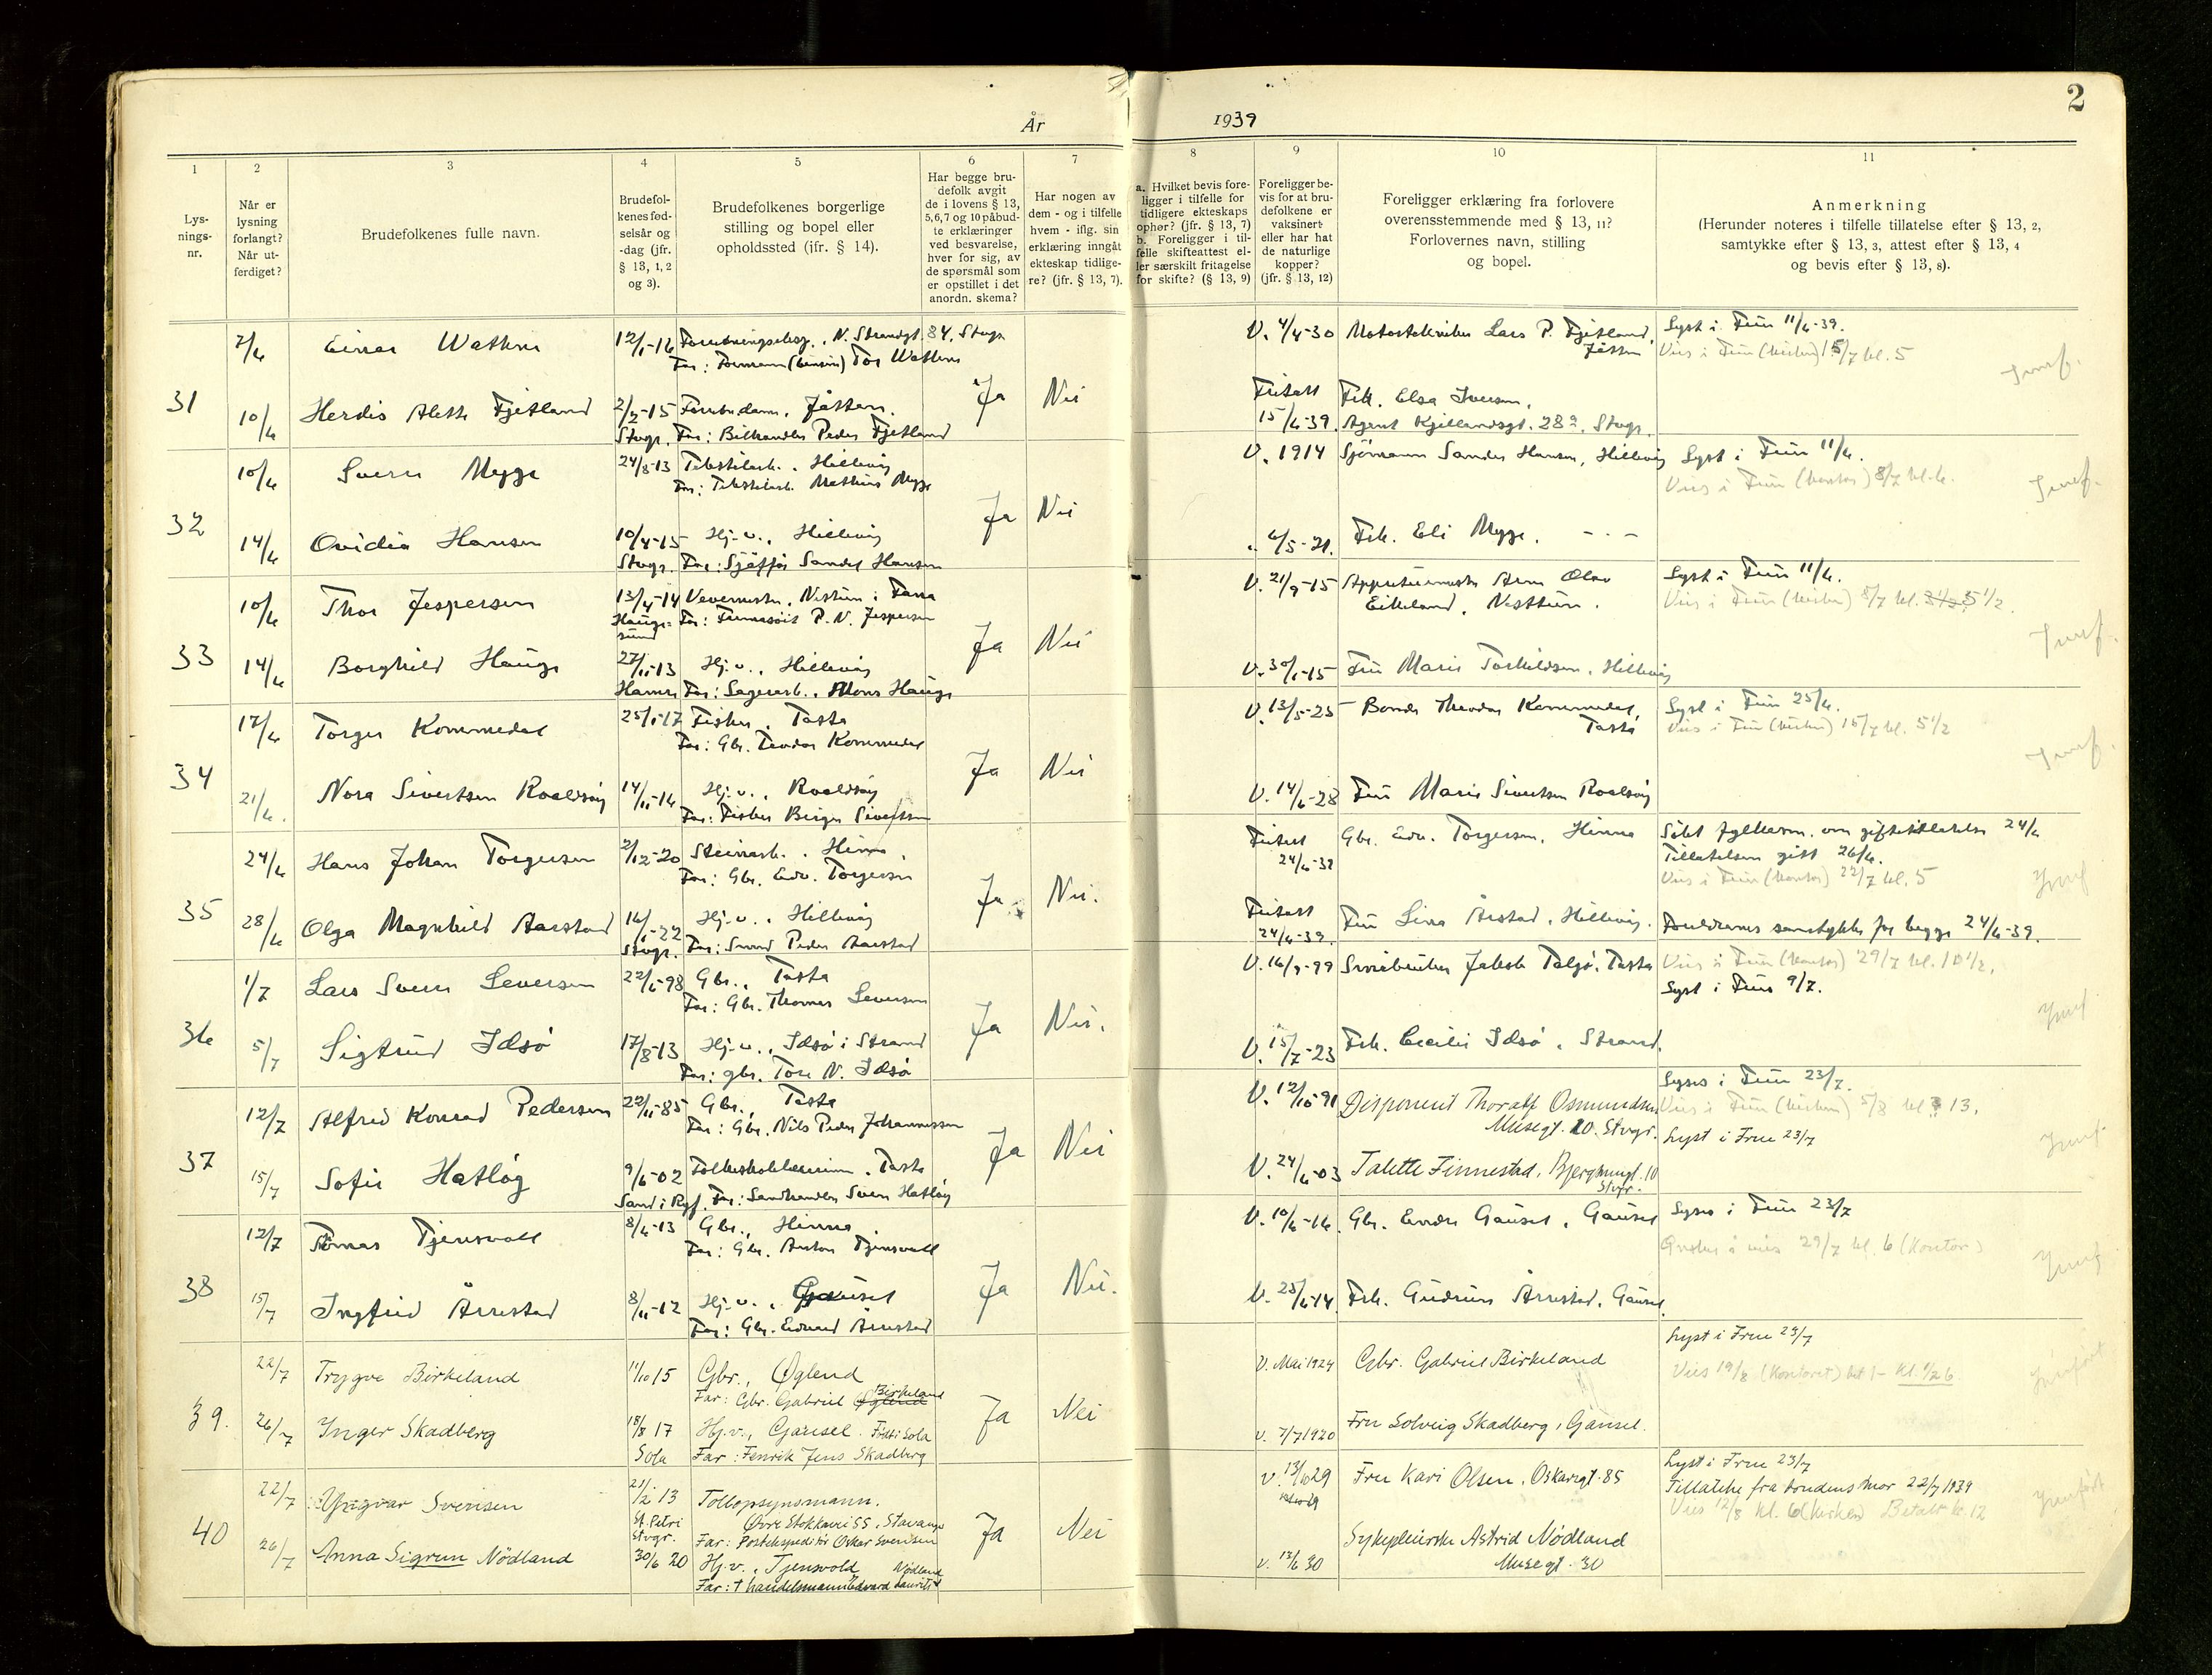 2
År 1939
1
2
3
4
5
6
7
8
9
10
11
Lys-
nings-
nr.
Når er
lysning
forlangt?
Når ut-
ferdiget?
Brudefolkenes fulle navn.
Brudefol-
kenes fød-
selsår og
-dag (jfr.
§ 13, 1, 2
og 3).
Brudefolkenes borgerlige
stilling og bopel eller
opholdssted (jfr. § 14).
Har begge bru-
defolk avgit
de i lovens § 13,
5,6,7 og 10 påbud-
te erklæringer
ved besvarelse,
hver for sig, av
de spørsmål som
er opstillet i det
anordn. skema?
Har nogen av
dem - og i tilfelle
hvem - iflg. sin
erklæring inngått
ekteskap tidlige-
re? (jfr. § 13, 7).
a. Hvilket bevis fore-
ligger i tilfelle for
tidligere ekteskaps
ophør? (jfr. § 13, 7)
b. Foreligger i til-
felle skifteattest el-
ler særskilt fritagelse
for skifte? (§ 13, 9)
Foreligger be-
vis for at bru-
defolkene er
vaksinert
eller har hat
de naturlige
kopper?
(jfr. § 13, 12)
Foreligger erklæring fra forlovere
overensstemmende med § 13, 11?
Forlovernes navn, stilling
og bopel.
Anmerkning
(Herunder noteres i tilfelle tillatelse efter § 13, 2,
samtykke efter § 13, 3, attest efter § 13, 4
og bevis efter § 13, 8).
31
7/6 Einar Wathne 12/1-16 N. Strandgt. 84, Stvgr.
Far: Formann (bensin) Tor Wathne
V. 4/4-30 Lars P. Fjetland, Jåtten
Lyst i Frue 11/6-39.
Vies i Frue (kirken) 15/7 kl. 5
10/6 Herdis Alette Fjetland 2/2-15 Jåtten.
Stvgr. Far: Bilhandler Peder Fjetland
Ja Nei
Fritatt 15/6-39. Frk. Elsa Iversen,
Agent Kjellandsgt. 28a, Stvgr.
32
10/6 Sverre Mygge 24/8-13 Tekstilarb., Hillevåg
Far: Tekstilarb. Mathias Mygge
V. 1914 Sjömann Sander Hansen, Hillevåg
Lyst i Frue 11/6.
Vies i Frue (kontor) 8/7 kl. 6.
14/6 Ovidia Hansen 10/4-15 Hj.v., Hillevåg
Stvgr. Far: Sander Hansen
Ja Nei
6/5-21. Frk. Eli Mygge, - - -
33
10/6 Thor Jespersen 13/4-14 Vevermester, Nesttun i Fana
Hauge-
sund Far: P. N. Jespersen
V. 21/9-15 Arne Olav
Eikeland, Nesttun.
Lyst i Frue 11/6.
Vies i Frue (kirken) 8/7 kl. 5 1/2.
14/6 Borghild Hauge 27/11-13 Hj.v., Hillevåg
Hamre Far: Sagarb. Mons Hauge
Ja Nei
V. 30/1-15 Fru Marie Torkildsen, Hillevåg
34
17/6 Torger Kommedal 25/1-17 Fisker, Tasta
Far: Gbr. Teodor Kommedal
V. 13/5-25 Bonde Theodor Kommedal,
Tasta
Lyst i Frue 25/6.
Vies i Frue (kirken) 15/7 kl. 5 1/2
21/6. Nora Sivertsen Roaldsøy 14/11-16 Hj.v., Roaldsøy
Far: Fisker Birger Sivertsen
Ja Nei
V. 14/6-28 Fru Marie Sivertsen Roaldsøy
35
24/6 Hans Johan Torgersen 2/12-20 Steinarb., Hinna.
Far: Gbr. Edv. Torgersen
Fritatt 24/6-39 Gbr. Edv. Torgersen, Hinna
Søkt fylkesm. om giftetillatelse 24/6
Tillatelsen gitt 26/6.
Vies i Frue (kontor) 22/7 kl. 5
28/6 Olga Magnhild Aarstad 16/1-22 Hj.v., Hillevåg
Stvgr. Far: Peder Aarstad
Ja Nei.
Fritatt 24/6-39. Fru Lina Årstad, Hillevåg.
Foreldrenes samtykke for begge 24/6-39.
36
1/7 Lars Sverre Seversen 22/6-98 Gbr., Tasta
Far: Gbr. Thomas Seversen
V. 16/9-99 Jakob Talgø, Tasta
Vies i Frue (kontor) 29/7 kl. 1 1/2.
Lyst i Frue 9/7.
5/7 Sigtrud Idsø 17/8-13 Hj.v., Idsø i Strand
Far: gbr. Tore N. Idsø
Ja Nei.
V. 15/7-23 Frk. Cecilie Idsø, Strand.
37
12/7 Alfred Konrad Pedersen 22/11-85 Gbr., Tasta
Far: Gbr. Nils Peder Johannessen
V. 12/10-91 Disponent Thoralf Osmundsen
Musegt. 20. Stvgr.
Lyses i Frue 23/7.
Vies i Frue (kirken) 5/8 kl. 13.
Lyst i Frue 23/7
15/7 Sofie Hatløy 9/6-02 Folkeskolelærerinne, Tasta
Sand i Ryf. Far: Landhandler Sven Hatløy
Ja Nei
V. 24/6-03 Talette Finnestad, Bjergmngt. 10
Stvgr.
38
12/7 Tomas Tjensvoll 8/6-13 Gbr., Hinna.
Far: Gbr. Anton Tjensvoll
V. 10/6-16. Gbr. Endre Gausel, Gausel
Lyses i Frue 23/7
Ønsker å vies 29/7 kl. 6 (Kontor)
15/7 Ingfrid Årrestad 8/11-12 Hj.v., Gausel
Far: Gbr. Edvard Årrestad
Ja Nei.
V. 25/6-14 Frk. Gudrun Årrestad, Gausel.
39.
22/7 Trygve Birkeland 11/10 15 Gbr., Øglend
Far: Gbr. Gabriel Øglend Birkeland
V. Mai 1924 Gbr. Gabriel Birkeland
Lyst i Frue 23/7
Vies 19/8 (Kontoret) kl. 1/2 6.
26/7 Inger Skadberg 18/8 17 Hj.v., Gausel. Født i Sola
Sola Far: Fenrik Jens Skadberg
Ja Nei
V. 7/7 1920 Fru Solveig Skadberg, Gausel.
40
22/7 Yngvar Svensen 21/2 13 Tollopsynsmann.
St. Petri
Stvgr. Øvre Stokkavei 55, Stavanger
Far: Postekspeditør Oskar Svensen
V. 13/10 29 Fru Kari Olsen. Oskarsgt. 85
Lyst i Frue 23/7
Tillatelse fra brudens mor 22/7 1939
Vies 12/8 kl. 6 (Kirken) Betalt kr. 12
26/7 Anna Sigrun Nödland 30/6 20 Hj.v., Tjensvold
Far: † handelsmann Edvard Laurits Nødland
Ja Nei
V. 12/6 30 Sykepleierske Astrid Nödland
Musegt. 30